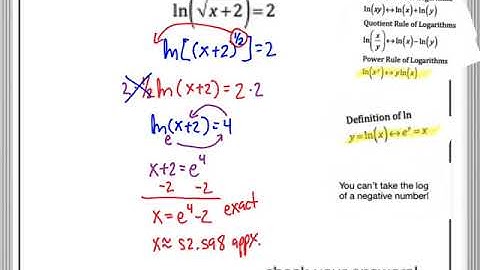 ln(√x+2)=2
ln[(x+2)^1/2]=2
2·1/2 ln(x+2)=2·2
ln(x+2)=4
e
x+2=e⁴
-2 -2
x=e⁴-2 exact
x≈52.598 appx.
ln(xy)↔ln(x)+ln(y)
Quotient Rule of Logarithms
ln(x/y)↔ln(x)-ln(y)
Power Rule of Logarithms
ln(xʸ)↔yln(x)
Definition of ln
y=ln(x)↔eʸ=x
You can't take the log
of a negative number!